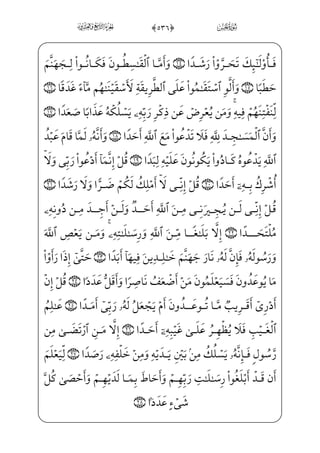 سورة الجن ﴿٥٣٦﴾ الجزء التاسع والعشرون
فَأُوْلَٰٓئِكَ تَحَرَّوْاْ رَشَدًا ١٤ وَأَمَّا ٱلْقَٰسِطُونَ فَكَانُواْ لِجَهَنَّمَ
حَطَبًا ١٥ وَأَن لَّوِ ٱسْتَقَٰمُواْ عَلَى ٱلطَّرِيقَةِ لَأَسْقَيْنَٰهُم مَّآءً غَدَقًا ١٦
لِّنَفْتِنَهُمْ فِيهِ ۚ وَمَنْ يُعْرِضْ عَن ذِكْرِ رَبِّهِۦ يَسْلُكْهُ عَذَابًا صَعَدًا ١٧
وَأَنَّ ٱلْمَسَٰجِدَ لِلَّهِ فَلَا تَدْعُواْ مَعَ ٱللَّهِ أَحَدًا ١٨ وَأَنَّهُۥ لَمَّا قَامَ عَبْدُ
ٱللَّهِ يَدْعُوهُ كَادُواْ يَكُونُونَ عَلَيْهِ لِبَدًا ١٩ قُلْ إِنَّمَآ أَدْعُواْ رَبِّى وَلَآ
أُشْرِكُ بِهِۦٓ أَحَدًا ٢٠ قُلْ إِنِّى لَآ أَمْلِكُ لَكُمْ ضَرًّا وَلَا رَشَدًا ٢١
قُلْ إِنِّى لَنْ يُجِيرَنِى مِنَ ٱللَّهِ أَحَدٌ وَلَنْ أَجِدَ مِن دُونِهِۦ
مُلْتَحَدًا ٢٢ إِلَّا بَلَٰغًا مِّنَ ٱللَّهِ وَرِسَٰلَٰتِهِۦ ۚ وَمَنْ يَعْصِ ٱللَّهَ
وَرَسُولَهُۥ فَإِنَّ لَهُۥ نَارَ جَهَنَّمَ خَٰلِدِينَ فِيهَآ أَبَدًا ٢٣ حَتَّىٰٓ إِذَا رَأَوْاْ
مَا يُوعَدُونَ فَسَيَعْلَمُونَ مَنْ أَضْعَفُ نَاصِرًا وَأَقَلُّ عَدَدًا ٢٤ قُلْ إِنْ
أَدْرِىٓ أَقَرِيبٌ مَّا تُوعَدُونَ أَمْ يَجْعَلُ لَهُۥ رَبِّىٓ أَمَدًا ٢٥ عَٰلِمُ
ٱلْغَيْبِ فَلَا يُظْهِرُ عَلَىٰ غَيْبِهِۦٓ أَحَدًا ٢٦ إِلَّا مَنِ ٱرْتَضَىٰ مِن
رَّسُولٍ فَإِنَّهُۥ يَسْلُكُ مِنۢ بَيْنِ يَدَيْهِ وَمِنْ خَلْفِهِۦ رَصَدًا ٢٧ لِّيَعْلَمَ
أَن قَدْ أَبْلَغُواْ رِسَٰلَٰتِ رَبِّهِمْ وَأَحَاطَ بِمَا لَدَيْهِمْ وَأَحْصَىٰ كُلَّ
شَىْءٍ عَدَدًا ٢٨